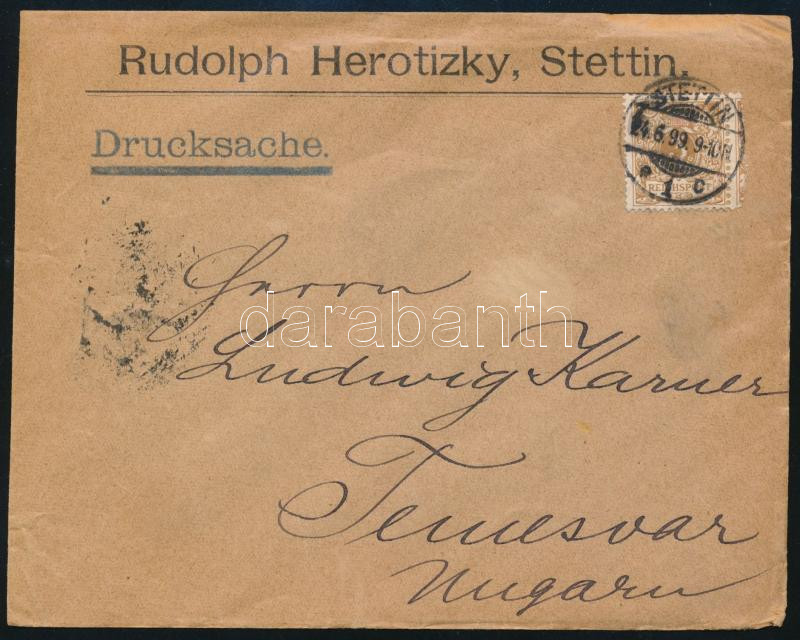 Rudolph Herotizky, Stettin.
Drucksache.
STETTIN
24.6.99. 9-10N
* 1 c
REICHSPOST
Herrn
darabanth
Ludwig Karner
Temesvar
Ungarn